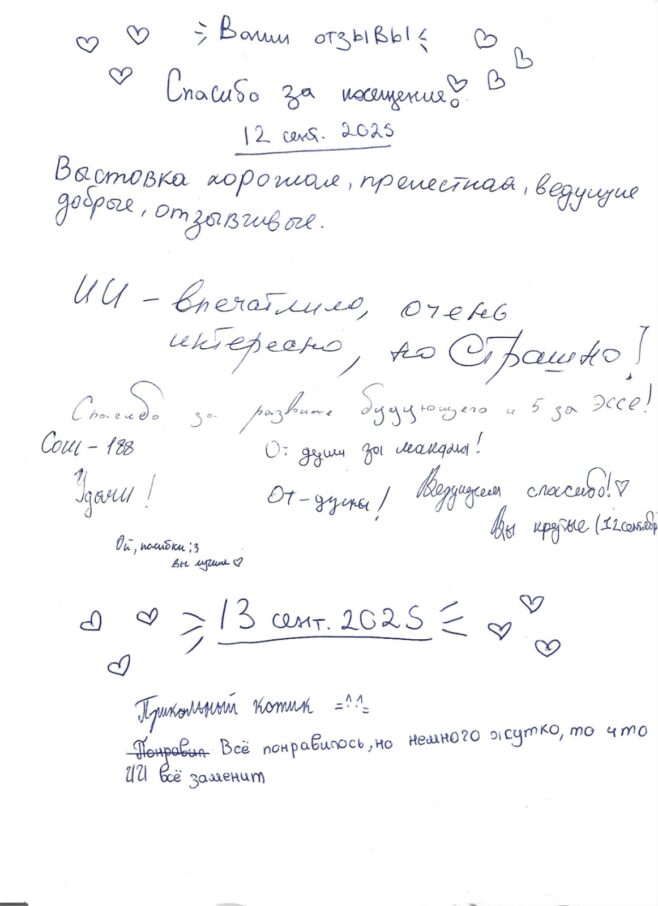 Ваши отзывы
Спасибо за посещение!
12 сент. 2025
Выстовка хорошая, прелестная, ведущие
добрые, отзывчивые.
ИИ – впечатлило, очень
интересно, но Страшно!
Спасибо за развитие будующего и 5 за Эссе!
Сош – 188
От души за мандалы!
Удачи!
От-души!
Ведущем спасибо! ♡
Вы крутые (12 сентябр
Ой, :3
вы лучшие ♡
13 сент. 2025
Прикольный котик =^^=
Понравил Всё понравилось, но немного жутко, то что
ИИ всё заменит